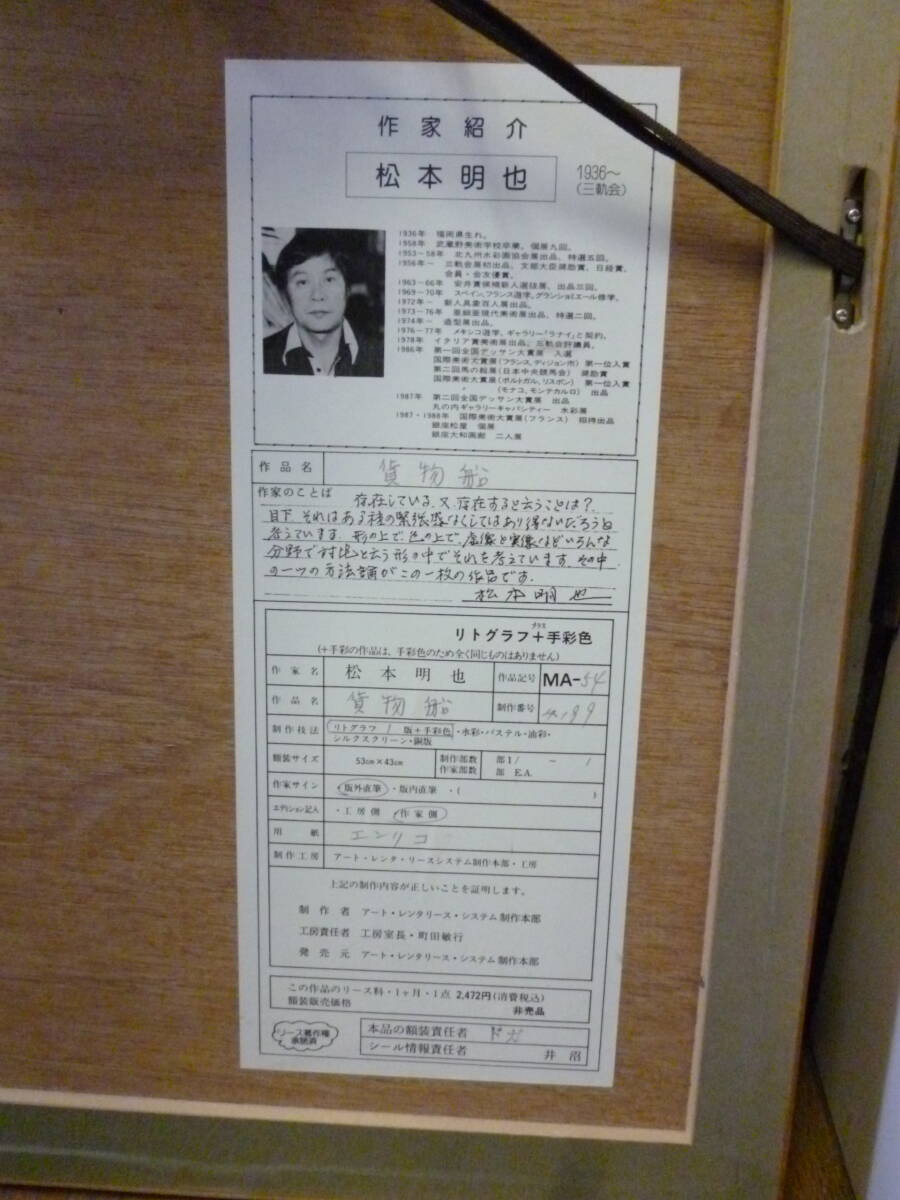 作家紹介
松本明也
1936〜
(三軌会)
1936年 福岡県生れ。
1958年 武蔵野美術学校卒業。個展九回。
1953−58年 北九州水彩画協会展出品、特選五回。
1956年− 三軌会展初出品、文部大臣奨励賞、日経賞、
会員・会友優賞。
1963−66年 安井賞候補新人選抜展、出品三回。
1969−70年 スペイン、フランス遊学。グランショミエール修学。
1972年− 新人具象百人展出品。
1973−76年 亜細亜現代美術展出品、特選二回。
1974年− 造型展出品。
1976−77年 メキシコ遊学、ギャラリー「ラナイ」と契約。
1978年 イタリア賞美術展出品、三軌会評議員。
1986年 第一回全国デッサン大賞展 入選
国際美術大賞展(フランス、ディジョン市) 第一位入賞
第二回馬の絵展(日本中央競馬会) 奨励賞
国際美術大賞展(ポルトガル、リスボン) 第一位入賞
〃 (モナコ、モンテカルロ) 出品
1987年 第二回全国デッサン大賞展 出品
丸の内ギャラリーキャパシティー 水彩展
1987・1988年 国際美術大賞展(フランス) 招待出品
銀座松屋 個展
銀座大和画廊 二人展
作品名 貨物船
作家のことば 存在している、又、存在すると云うことは?
目下、それはある種の緊張感なくしてはあり得ないだろうと
考えています。形の上で、色の上で、虚像と実像などいろんな
分野で対峙と云う形の中でそれを考えています。その中
の一つの方法論がこの一枚の作品です。
松本明也
リトグラフ+手彩色
プラス
(+手彩の作品は、手彩色のため全く同じものはありません)
作家名 松本明也 作品記号 MA-54
作品名 貨物船 制作番号
制作技法 リトグラフ / 版+手彩色・水彩・パステル・油彩・
シルクスクリーン・銅版
額装サイズ 53cm×43cm 制作部数 部 1/ − /
作家部数 部 E.A.
作家サイン 版外直筆・版内直筆・( )
エディション記入 ・工房側 ・作家側
用紙 エンリコ
制作工房 アート・レンタ・リースシステム制作本部・工房
上記の制作内容が正しいことを証明します。
制作者 アート・レンタリース・システム制作本部
工房責任者 工房室長・町田敏行
発売元 アート・レンタリース・システム制作本部
この作品のリース料・1ヶ月・1点 2,472円(消費税込)
額装販売価格 非売品
リース著作権
承諾済
本品の額装責任者 ドガ
シール情報責任者 井沼